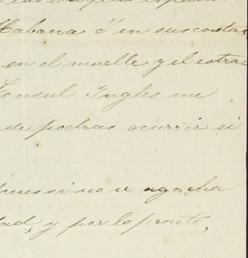 Habana ó en sus costas
en el muelle y el estrac
Consul Ingles me
de podras ocurrir si
pues si no se agacha
dad, y por lo pronto,